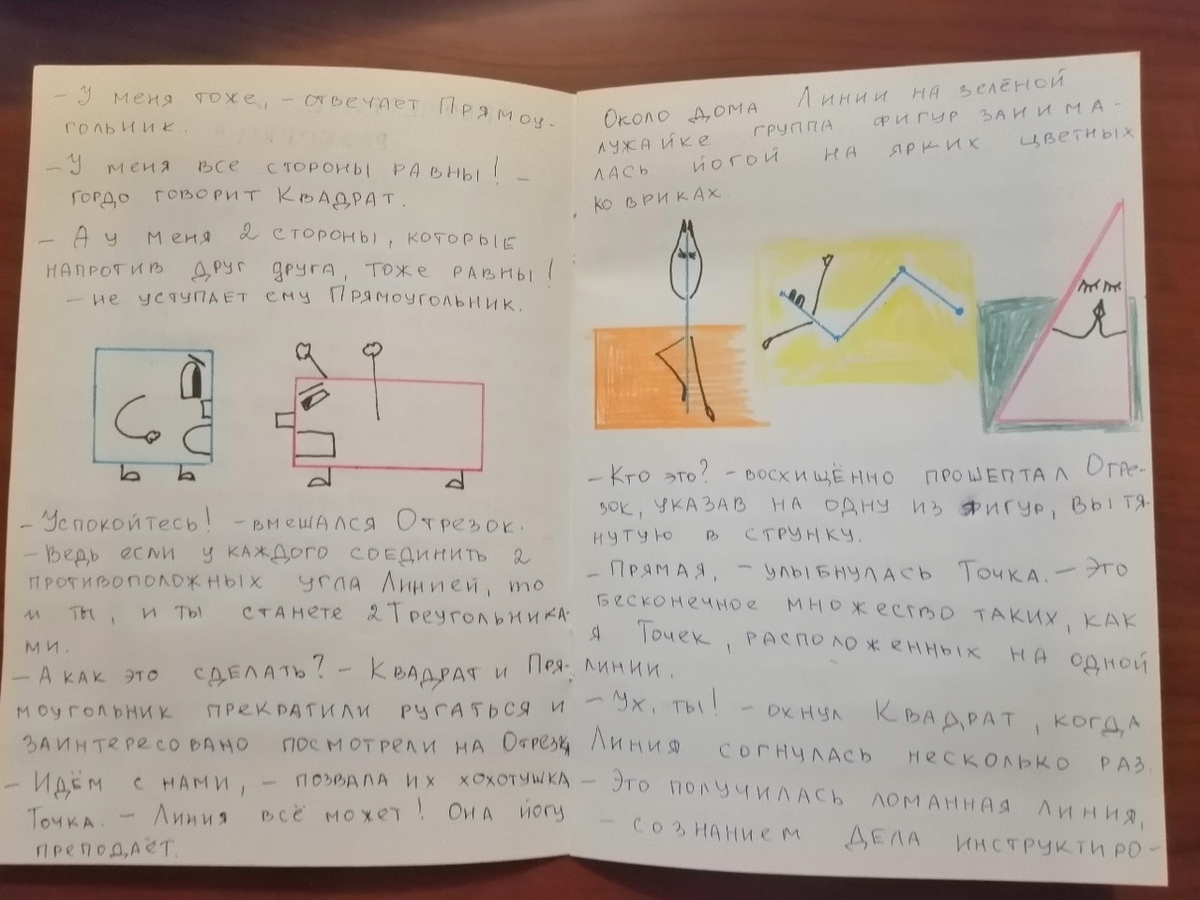 - У меня тоже, - отвечает Прямоу-
гольник.
- У меня все стороны равны! -
гордо говорит Квадрат.
- А у меня 2 стороны, которые
напротив друг друга, тоже равны!
- не уступает ему Прямоугольник.
- Успокойтесь! - вмешался Отрезок.
- Ведь если у каждого соединить 2
противоположных угла Линией, то
и ты, и ты станете 2 Треугольника-
ми.
- А как это сделать? - Квадрат и Пря-
моугольник прекратили ругаться и
заинтересовано посмотрели на Отрезк
- Идём с нами, - позвала их хохотушка
Точка. - Линия всё может! Она йогу
преподаёт.
Около дома Линии на зелёной
лужайке группа фигур занима-
лась йогой на ярких цветных
ковриках.
- Кто это? - восхищённо прошептал Отре-
зок, указав на одну из фигур, вытя
нутую в струнку.
- Прямая, - улыбнулась Точка. - Это
бесконечное множество таких, как
я Точек, расположенных на одной
линии.
- Ух, ты! - охнул Квадрат, когда
Линия согнулась несколько раз.
- Это получилась ломанная линия,
- сознанием дела инструктиро-